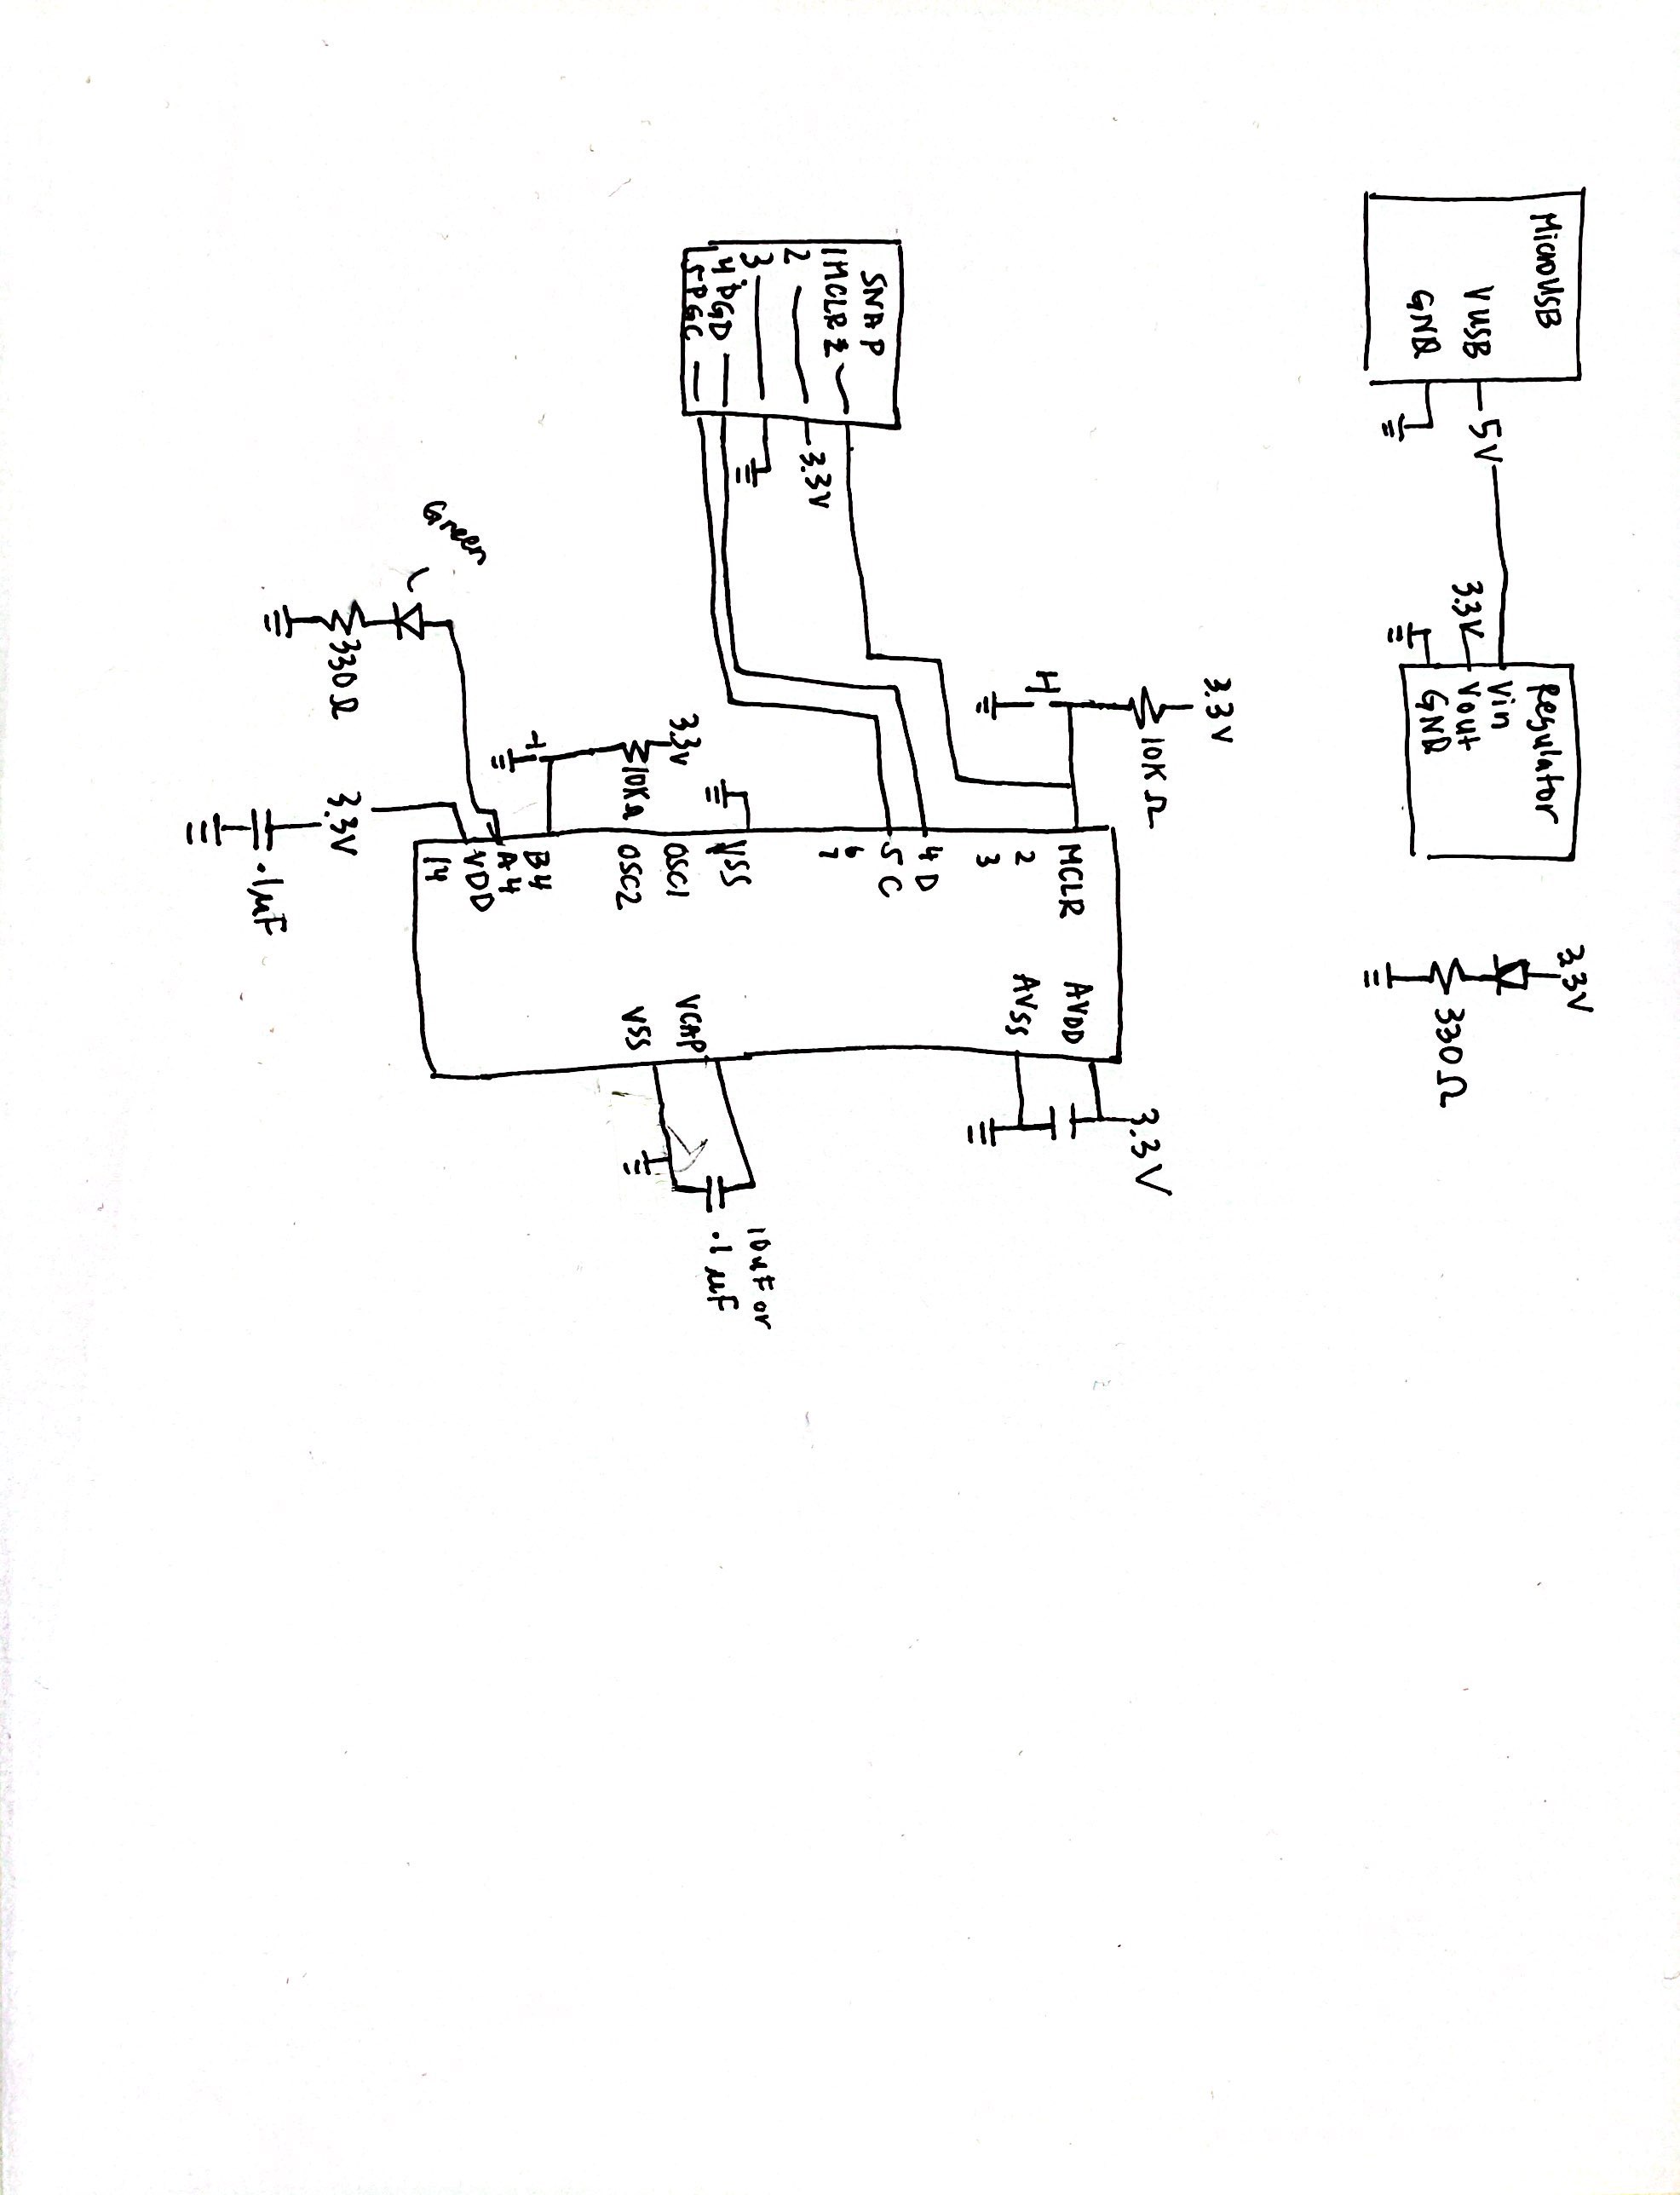 MicroUSB
VUSB
GND
5V
3.3V
Regulator
Vin
Vout
GND
3.3V
330Ω
SNAP
1 MCLR
2
3
4 PGD
5 PGC
3.3V
3.3V
10KΩ
MCLR
2
3
4 D
5 C
6
7
VSS
OSC1
OSC2
B4
A4
VDD
14
AVDD
AVSS
VCAP
VSS
3.3V
10uF or
.1µF
3.3V
10KΩ
Green
330Ω
3.3V
.1µF